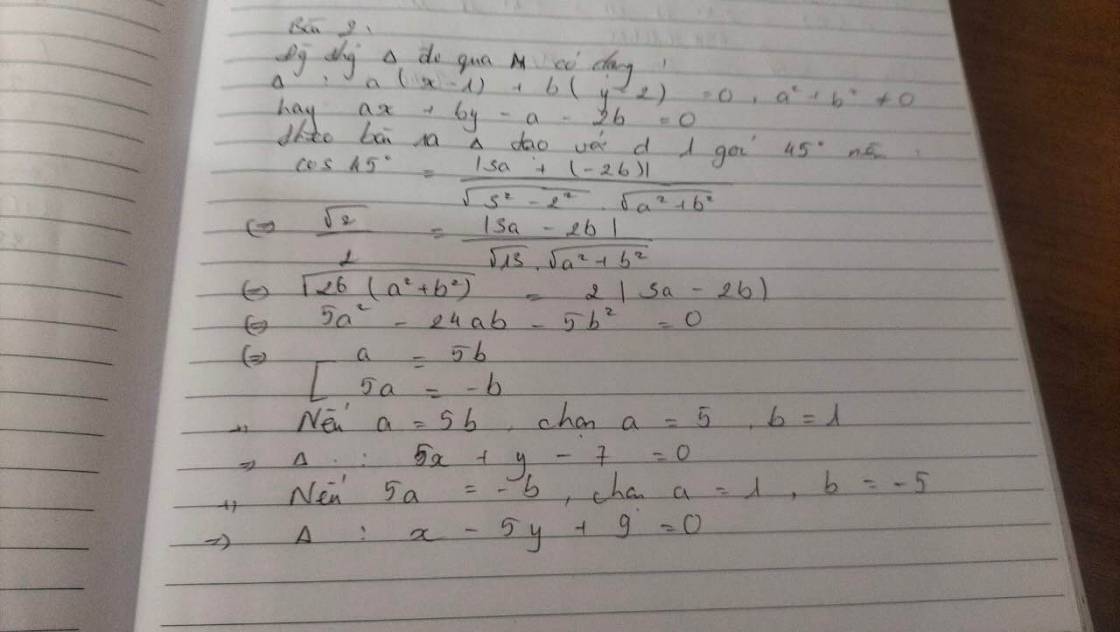 Bài 2.
Đg thg Δ đi qua M có dạng:
Δ : a(x-1) + b(y-2) = 0, a² + b² ≠ 0
hay ax + by - a - 2b = 0
theo bài ra Δ tạo với d 1 góc 45° nên:
cos 45° = |3a + (-2b)| / √3² - 2² . √a² + b²
⇔ √2 / 2 = |3a - 2b| / √13 . √a² + b²
⇔ √26(a² + b²) = 2|3a - 2b|
⇔ 5a² - 24ab - 5b² = 0
⇔ [ a = 5b
5a = -b
+) Nếu a = 5b, chọn a = 5, b = 1
⇒ Δ : 5x + y - 7 = 0
+) Nếu 5a = -b, chọn a = 1, b = -5
⇒ Δ : x - 5y + 9 = 0